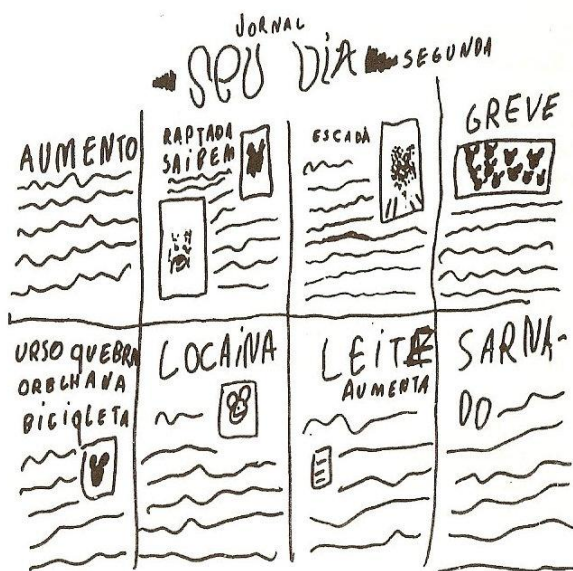 JORNAL
SEU DIA
SEGUNDA
AUMENTO
RAPTADA
SAIREM
ESCADA
GREVE
URSO QUEBRA
ORELHA NA
BICICLETA
COCAINA
LEITE
AUMENTA
SARNA-
DO